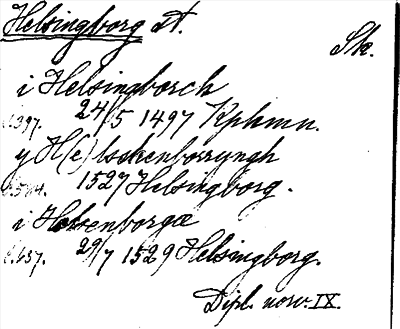 Helsingborg st.
Sk.
i Helsingborch
s.397. 24/5 1497 Kphmn.
y H(e)lsckenborryngh
1527 Helsingborg.
i Helsenborgæ
s.657. 29/7 1529 Helsingborg.
Dipl. norv. IX.